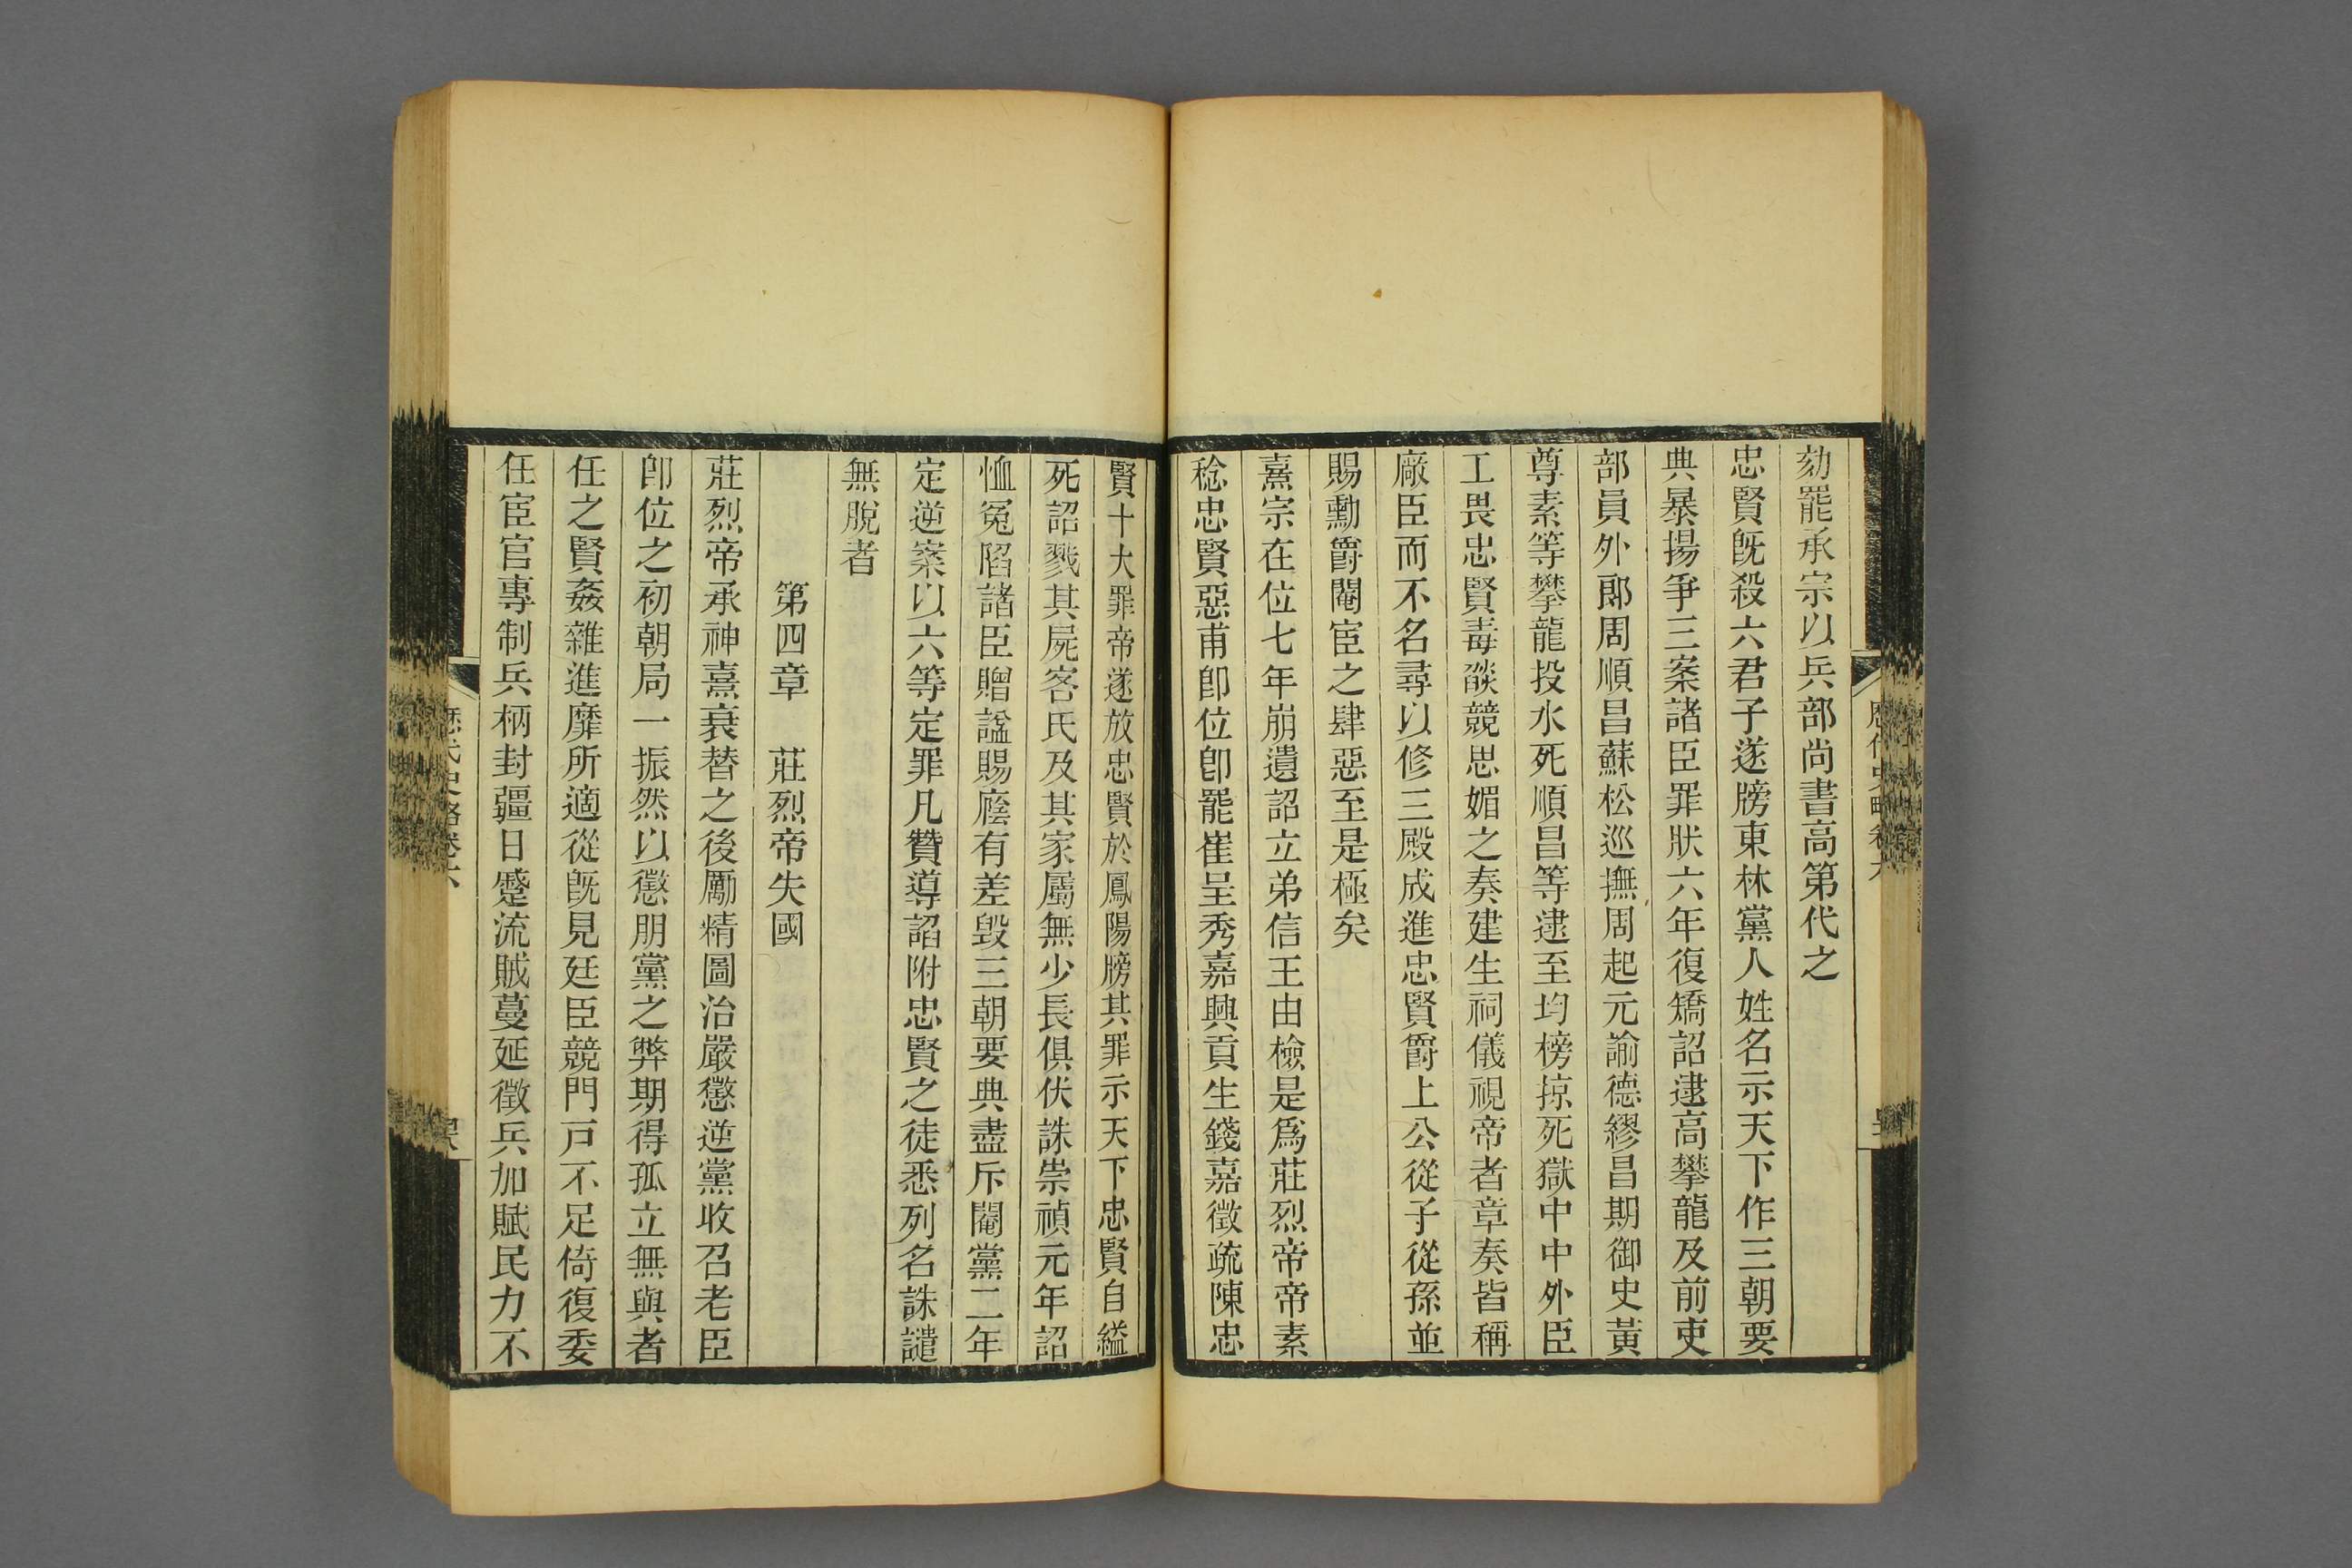 劾罷承宗以兵部尚書高第代之
忠賢既殺六君子遂牓東林黨人姓名示天下作三朝要
典暴揚爭三案諸臣罪狀六年復矯詔逮高攀龍及前吏
部員外郎周順昌蘇松巡撫周起元諭德繆昌期御史黃
尊素等攀龍投水死順昌等逮至均榜掠死獄中中外臣
工畏忠賢毒燄競思媚之奏建生祠儀視帝者章奏皆稱
廠臣而不名尋以修三殿成進忠賢爵上公從子從孫並
賜勳爵閹宦之肆惡至是極矣
熹宗在位七年崩遺詔立弟信王由檢是爲莊烈帝帝素
稔忠賢惡甫卽位卽罷崔呈秀嘉興貢生錢嘉徵疏陳忠
賢十大罪帝遂放忠賢於鳳陽牓其罪示天下忠賢自縊
死詔戮其屍客氏及其家屬無少長俱伏誅崇禎元年詔
恤冤陷諸臣贈諡賜廕有差毀三朝要典盡斥閹黨二年
定逆案以六等定罪凡贊導諂附忠賢之徒悉列名誅譴
無脫者
第四章　莊烈帝失國
莊烈帝承神熹衰替之後勵精圖治嚴懲逆黨收召老臣
卽位之初朝局一振然以懲朋黨之弊期得孤立無與者
任之賢姦雜進靡所適從既見廷臣競門戶不足倚復委
任宦官專制兵柄封疆日蹙流賊蔓延徵兵加賦民力不
歷代史略卷六